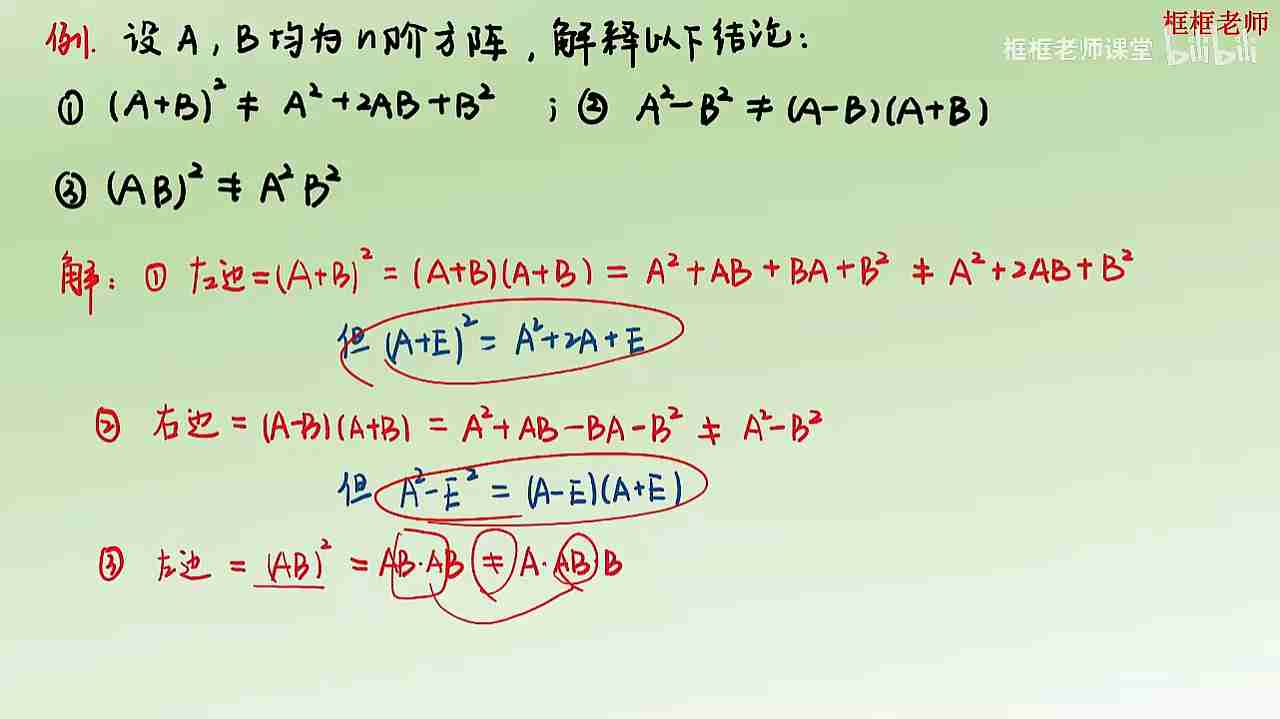 框框老师
框框老师课堂 bilibili
例. 设 A, B 均为 n 阶方阵, 解释以下结论:
① (A+B)² ≠ A²+2AB+B² ; ② A²-B² ≠ (A-B)(A+B)
③ (AB)² ≠ A²B²
解: ① 左边=(A+B)² = (A+B)(A+B) = A²+AB+BA+B² ≠ A²+2AB+B²
但 (A+E)² = A²+2A+E
② 右边 = (A-B)(A+B) = A²+AB-BA-B² ≠ A²-B²
但 A²-E² = (A-E)(A+E)
③ 左边 = (AB)² = AB·AB ≠ A·AB·B